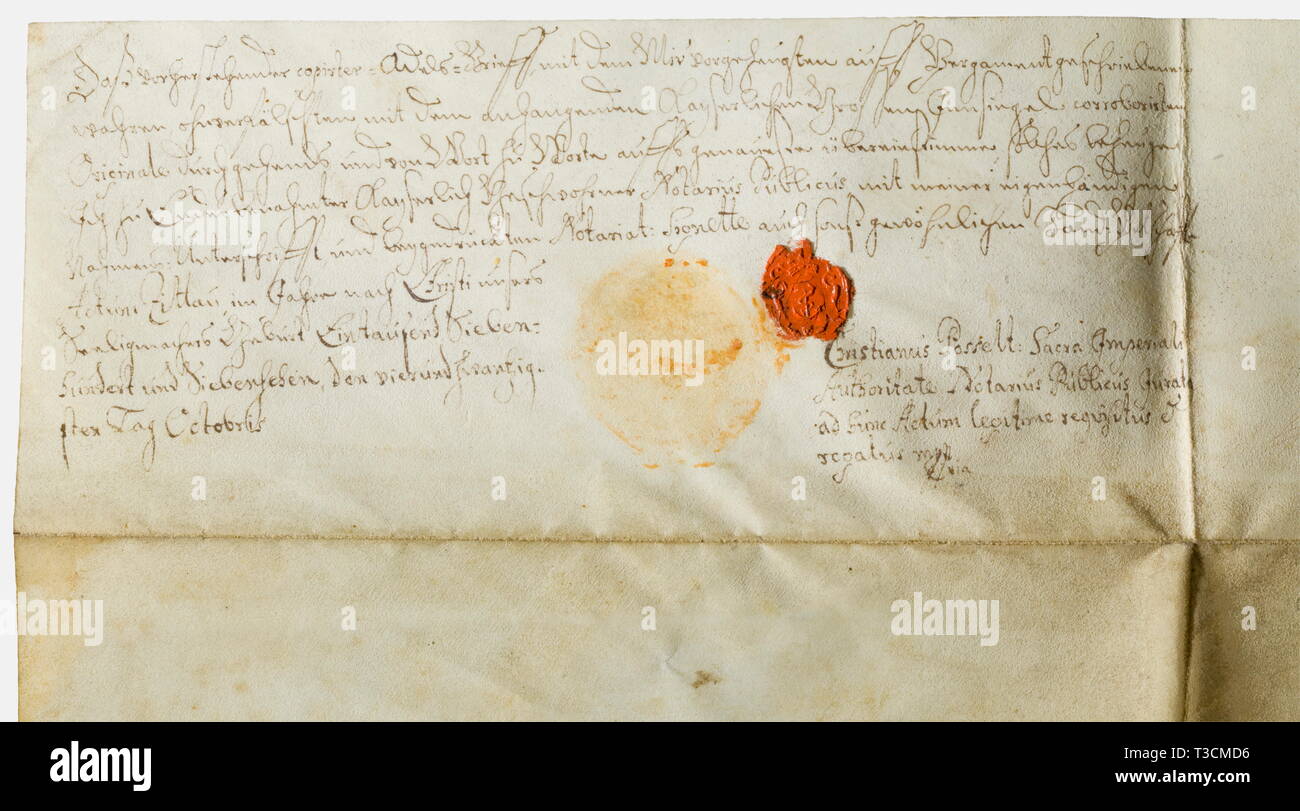 Daß vorherstehender copirter Adels-Brieff, mit dem Mir vorgezeugten auff Pergament geschriebenen
wahren ohnverfälschten mit dem anhangenden Kayserlichen Grossen Innsiegel corroborirten
Originale durchgehends und von Wort zu Worte auffs genaueste übereinkomme, solches bezeuge
Ich zu Ende erwehnter Kayserlich Geschwohrner Notarius Publicus, mit meiner eigenhändigen
Nahmens Unterschrifft und beygedrückten Notariat: auch sonst gewöhnlichen
Actum Zittau, im Jahre nach Christi unsers
Seeligmachers Geburt Eintausend Sieben-
hundert und Siebenzehen, den vierundzwantzig-
sten Tag Octobris
Christianus Posselt: Sacra Imperiali
Authoritate Notarius Publicus Jurat9
ad hunc Actum legitime requisitus &
rogatus mpp
alamy
a
alamy
a
alamy
a
alamy
a
alamy
Image ID: T3CMD6
www.alamy.com